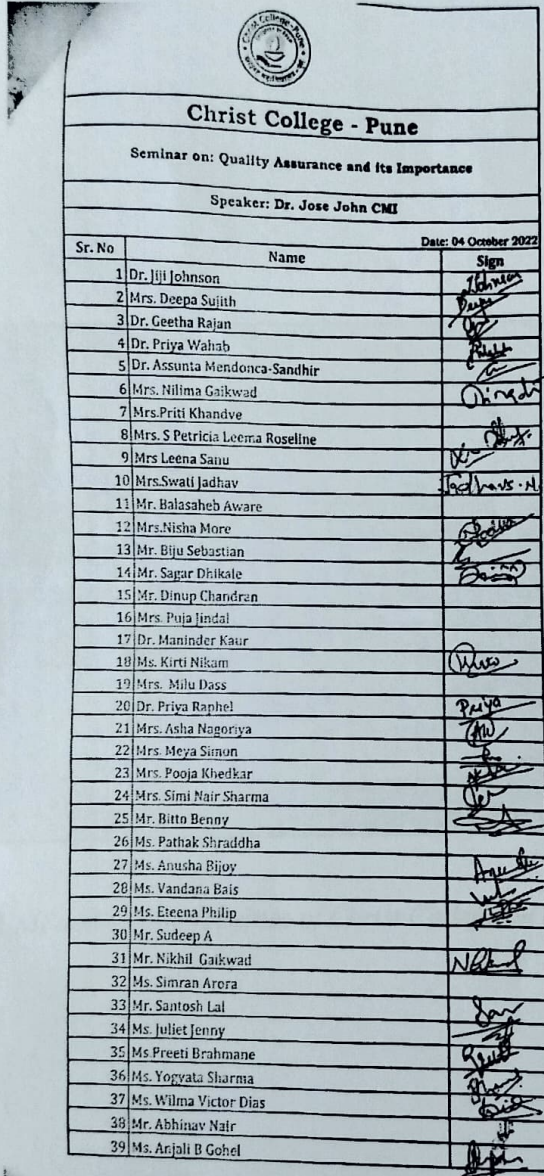 Christ College - Pune
Christ College - Pune
Seminar on: Quality Assurance and its Importance
Speaker: Dr. Jose John CMI
Date: 04 October 2022
Sr. No Name Sign
1 Dr. Jiji Johnson
2 Mrs. Deepa Sujith
3 Dr. Geetha Rajan
4 Dr. Priya Wahab
5 Dr. Assunta Mendonca-Sandhir
6 Mrs. Nilima Gaikwad
7 Mrs.Priti Khandve
8 Mrs. S Petricia Leema Roseline
9 Mrs Leena Sanu
10 Mrs.Swati Jadhav
11 Mr. Balasaheb Aware
12 Mrs.Nisha More
13 Mr. Biju Sebastian
14 Mr. Sagar Dhikale
15 Mr. Dinup Chandran
16 Mrs. Puja Jindal
17 Dr. Maninder Kaur
18 Ms. Kirti Nikam
19 Mrs. Milu Dass
20 Dr. Priya Raphel Priya
21 Mrs. Asha Nagoriya
22 Mrs. Meya Simon
23 Mrs. Pooja Khedkar
24 Mrs. Simi Nair Sharma
25 Mr. Bitto Benny
26 Ms. Pathak Shraddha
27 Ms. Anusha Bijoy
28 Ms. Vandana Bais
29 Ms. Eteena Philip
30 Mr. Sudeep A
31 Mr. Nikhil Gaikwad
32 Ms. Simran Arora
33 Mr. Santosh Lal
34 Ms. Juliet Jenny
35 Ms.Preeti Brahmane
36 Ms. Yogyata Sharma
37 Ms. Wilma Victor Dias
38 Mr. Abhinav Nair
39 Ms. Anjali B Gohel